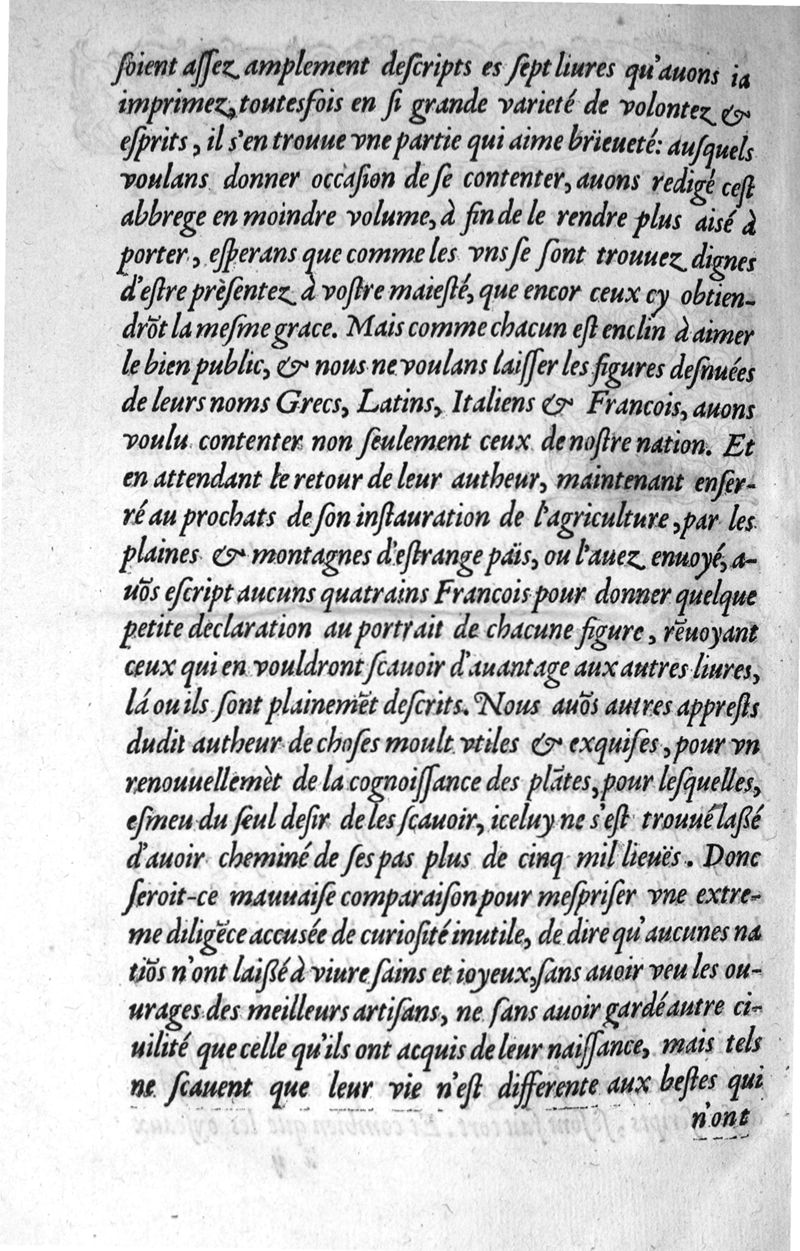 ſoient aſſez amplement deſcripts es ſept liures qu'auons ia
imprimez, toutesfois en ſi grande varieté de volontez &
eſprits, il s'en trouue vne partie qui aime brieueté: auſquels
voulans donner occaſion de ſe contenter, auons redigé ceſt
abbrege en moindre volume, à fin de le rendre plus aisé à
porter, eſperans que comme les vns ſe ſont trouuez dignes
d'eſtre prèſentez à voſtre maieſté, que encor ceux cy obtien-
drõt la meſme grace. Mais comme chacun eſt enclin à aimer
le bien public, & nous ne voulans laiſſer les figures deſnuées
de leurs noms Grecs, Latins, Italiens & Francois, auons
voulu contenter non ſeulement ceux de noſtre nation. Et
en attendant le retour de leur autheur, maintenant enſer-
ré au prochats de ſon inſtauration de l'agriculture, par les
plaines & montagnes d'eſtrange païs, ou l'auez enuoyé, a-
uõs eſcript aucuns quatrains Francois pour donner quelque
petite declaration au portrait de chacune figure, rẽuoyant
ceux qui en vouldront ſcauoir d'auantage aux autres liures,
lá ou ils ſont plainemẽt deſcrits. Nous auõs autres appreſts
dudit autheur de choſes moult vtiles & exquiſes, pour vn
renouuellemèt de la cognoiſſance des plãtes, pour leſquelles,
eſmeu du ſeul deſir de les ſcauoir, iceluy ne s'eſt trouué laßé
d'auoir cheminé de ſes pas plus de cinq mil lieuës. Donc
ſeroit-ce mauuaiſe comparaiſon pour meſpriſer vne extre-
me diligẽce accusée de curioſité inutile, de dire qu'aucunes na
tiõs n'ont laißé à viure ſains et ioyeux, ſans auoir veu les ou-
urages des meilleurs artiſans, ne ſans auoir gardé autre ci-
uilité que celle qu'ils ont acquis de leur naiſſance, mais tels
ne ſcauent que leur vie n'eſt differente aux beſtes qui
n'ont